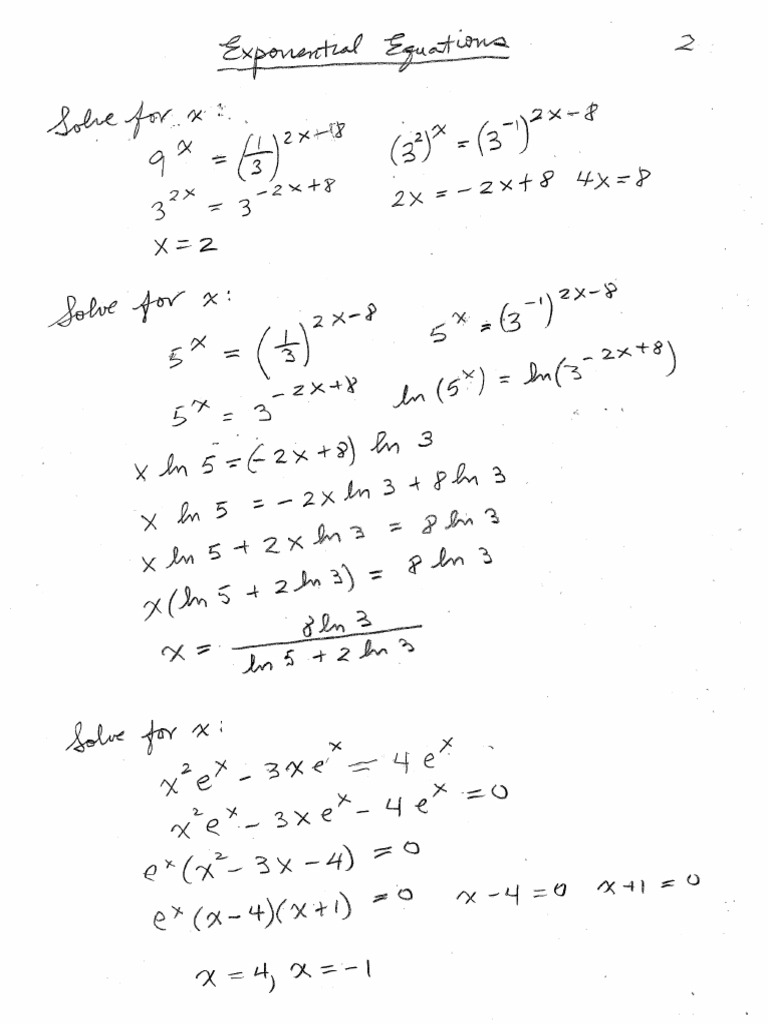 Exponential Equations 2
Solve for x:
9^x = (1/3)^(2x-8) (3^2)^x = (3^-1)^(2x-8)
3^(2x) = 3^(-2x+8) 2x = -2x+8 4x=8
x=2
Solve for x:
5^x = (1/3)^(2x-8) 5^x = (3^-1)^(2x-8)
5^x = 3^(-2x+8) ln(5^x) = ln(3^(-2x+8))
x ln 5 = (-2x+8) ln 3
x ln 5 = -2x ln 3 + 8 ln 3
x ln 5 + 2x ln 3 = 8 ln 3
x(ln 5 + 2 ln 3) = 8 ln 3
x = 8 ln 3 / (ln 5 + 2 ln 3)
Solve for x:
x^2 e^x - 3xe^x = 4e^x
x^2 e^x - 3xe^x - 4e^x = 0
e^x (x^2 - 3x - 4) = 0
e^x (x-4)(x+1) = 0 x-4=0 x+1=0
x=4, x=-1